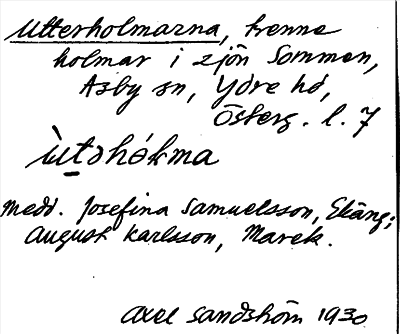 Utterholmarna, trenne
holmar i sjön Sommen,
Asby sn, Ydre hd,
Österg. l. 7
ùtəhókma
medd. Josefina Samuelsson, Ekäng;
August Karlsson, Marek.
Axel Sandström 1930